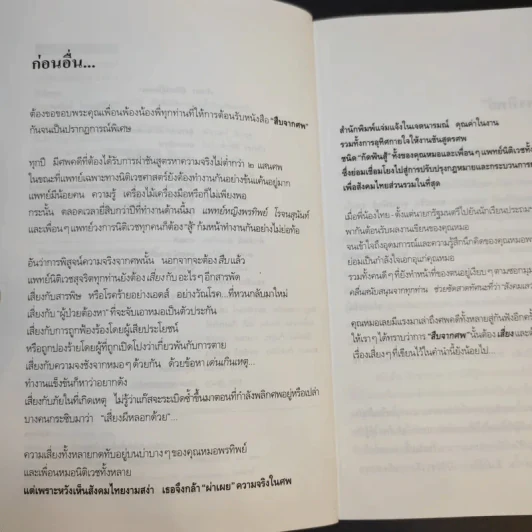 ก่อนอื่น...
ต้องขอขอบพระคุณเพื่อนพ้องน้องพี่ทุกท่านที่ให้การต้อนรับหนังสือ "สืบจากศพ"
กันจนเป็นปรากฏการณ์พิเศษ
ทุกปี มีศพคดีที่ต้องได้รับการผ่าชันสูตรหาความจริงไม่ต่ำกว่า ๒ แสนศพ
ในขณะที่แพทย์เฉพาะทางนิติเวชศาสตร์ยังต้องทำงานกันอย่างขันแค้นอยู่มาก
แพทย์มีน้อยคน ความรู้ เครื่องไม้เครื่องมือหรือก็ไม่เพียงพอ
กระนั้น ตลอดเวลายี่สิบกว่าปีที่ทำงานด้านนี้มา แพทย์หญิงพรทิพย์ โรจนสุนันท์
และเพื่อนๆ แพทย์วงการนิติเวชทุกคนก็ต้อง "สู้" ก้มหน้าทำงานกันอย่างไม่ย่อท้อ
อันว่าการพิสูจน์ความจริงจากศพนั้น นอกจากจะต้อง สืบ แล้ว
แพทย์นิติเวชสุจริตทุกท่านยังต้อง เสี่ยง กับ อะไร ๆ อีกสารพัด
เสี่ยงกับสารพิษ หรือโรคร้ายอย่างเอดส์ อย่างวัณโรค...ที่หวนกลับมาใหม่
เสี่ยงกับ "ผู้ป่วยต้องหา" ที่จะจับเอาหมอเป็นตัวประกัน
เสี่ยงกับการถูกฟ้องร้องโดยผู้เสียประโยชน์
หรือถูกปองร้ายโดยผู้ที่ถูกเปิดโปงว่าเกี่ยวพันกับการตาย
เสี่ยงกับความจงชังจากหมอๆ ด้วยกัน ด้วยข้อหา เด่นเกินเหตุ...
ทำงานแข็งขันก็หาว่าอยากดัง
เสี่ยงกับภัยในที่เกิดเหตุ ไม่รู้ว่าแก๊สจะระเบิดซ้ำขึ้นมาตอนที่กำลังพลิกศพอยู่หรือเปล่า
บางคนกระซิบมาว่า "เสี่ยงผีหลอกด้วย"...
ความเสี่ยงทั้งหลายกดทับอยู่บนบ่าบาง ๆ ของคุณหมอพรทิพย์
และเพื่อนหมอนิติเวชทั้งหลาย
แต่เพราะหวังเห็นสังคมไทยงามสง่า เธอจึงกล้า "ผ่าเผย" ความจริงในศพ
สำนักพิมพ์แจ่มแจ้งในเจตนารมณ์ คุณค่าในงาน
รวมทั้งการอุทิศกายใจให้งานชันสูตรศพ
ชนิด "กัดฟันสู้" ทั้งของคุณหมอและเพื่อนๆ แพทย์นิติเวชทั้ง
ซึ่งย่อมเชื่อมโยงไปสู่การปรับปรุงกฎหมายและกระบวนการ
เพื่อสังคมไทยส่วนรวมในที่สุด
เมื่อพี่น้องไทย - ตั้งแต่นายกรัฐมนตรีไปยันนักเรียนประถม
พากันต้อนรับผลงานเขียนของคุณหมอ
จนเข้าใจถึงอุดมการณ์และความรู้สึกนึกคิดของคุณหมอ
ย่อมเป็นกำลังใจเอกอุแก่คุณหมอ
รวมทั้งคนดีๆ ที่ยังทำหน้าที่ของตนอยู่เงียบ ๆ ตามซอกมุม
คลื่นสนับสนุนจากทุกท่าน ช่วยขัดสาดทัศนะที่ว่า "สังคม
คุณหมอเลยมีแรงมาเล่าถึงศพคดีทั้งหลายสู่กันฟังอีกครั้ง
ให้เรา ๆ ได้ทราบว่าการ "สืบจากศพ" นั้นต้อง เสี่ยง และ
เรื่องเสี่ยงๆ ที่เขียนไว้ในคำนำนี้ยังน้อยไป...